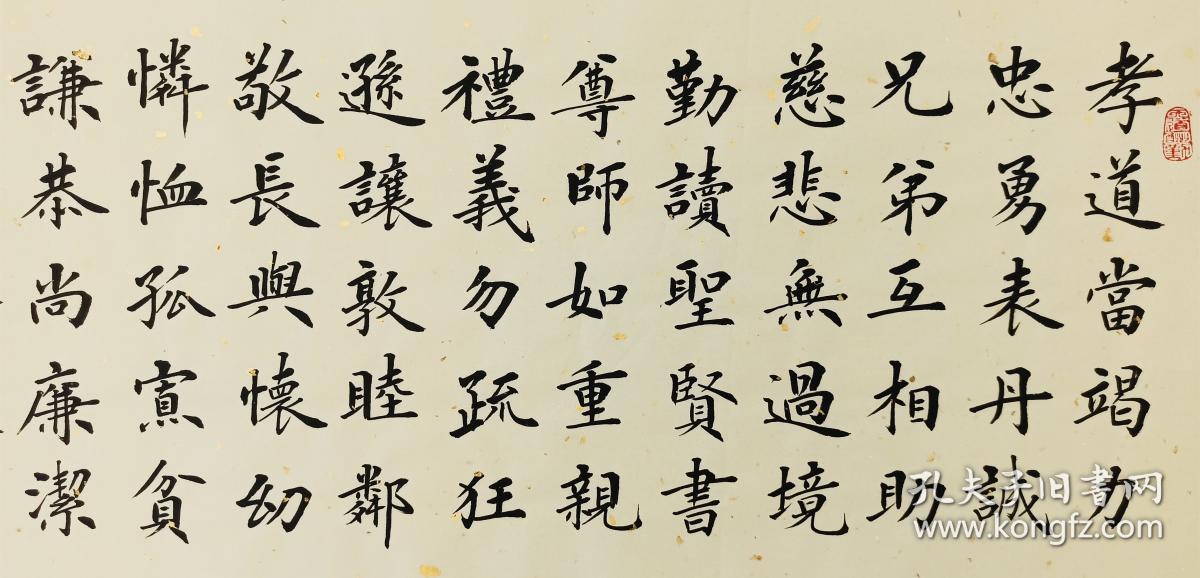 孝道當竭力
忠勇表丹誠
兄弟互相助
慈悲無過境
勤讀聖賢書
尊師如重親
禮義勿疏狂
遜讓敦睦鄰
敬長與懷幼
憐恤孤寡貧
謙恭尚廉潔
孔夫子旧书网
www.kongfz.com